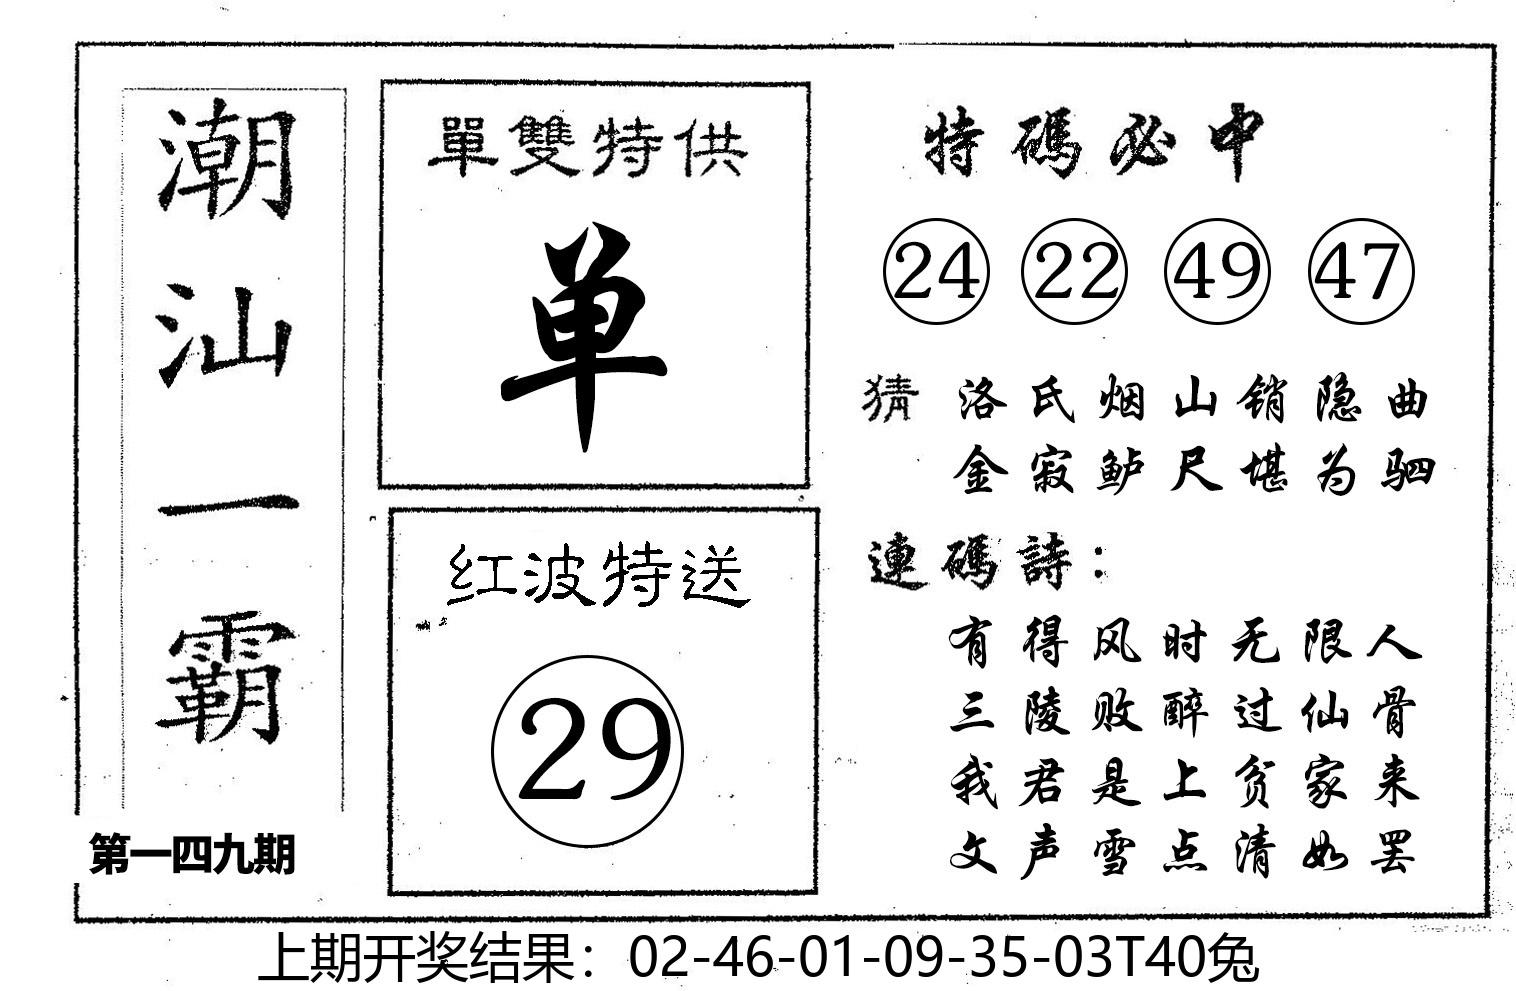 潮汕一霸
第一四九期
單雙特供
单
红波特送
29
特碼必中
24 22 49 47
猜 洛氏烟山销隐曲
金寂鲈尺堪为驷
連碼詩：
有得风时无限人
三陵败醉过仙骨
我君是上贫家来
文声雪点清如罢
上期开奖结果：02-46-01-09-35-03T40兔